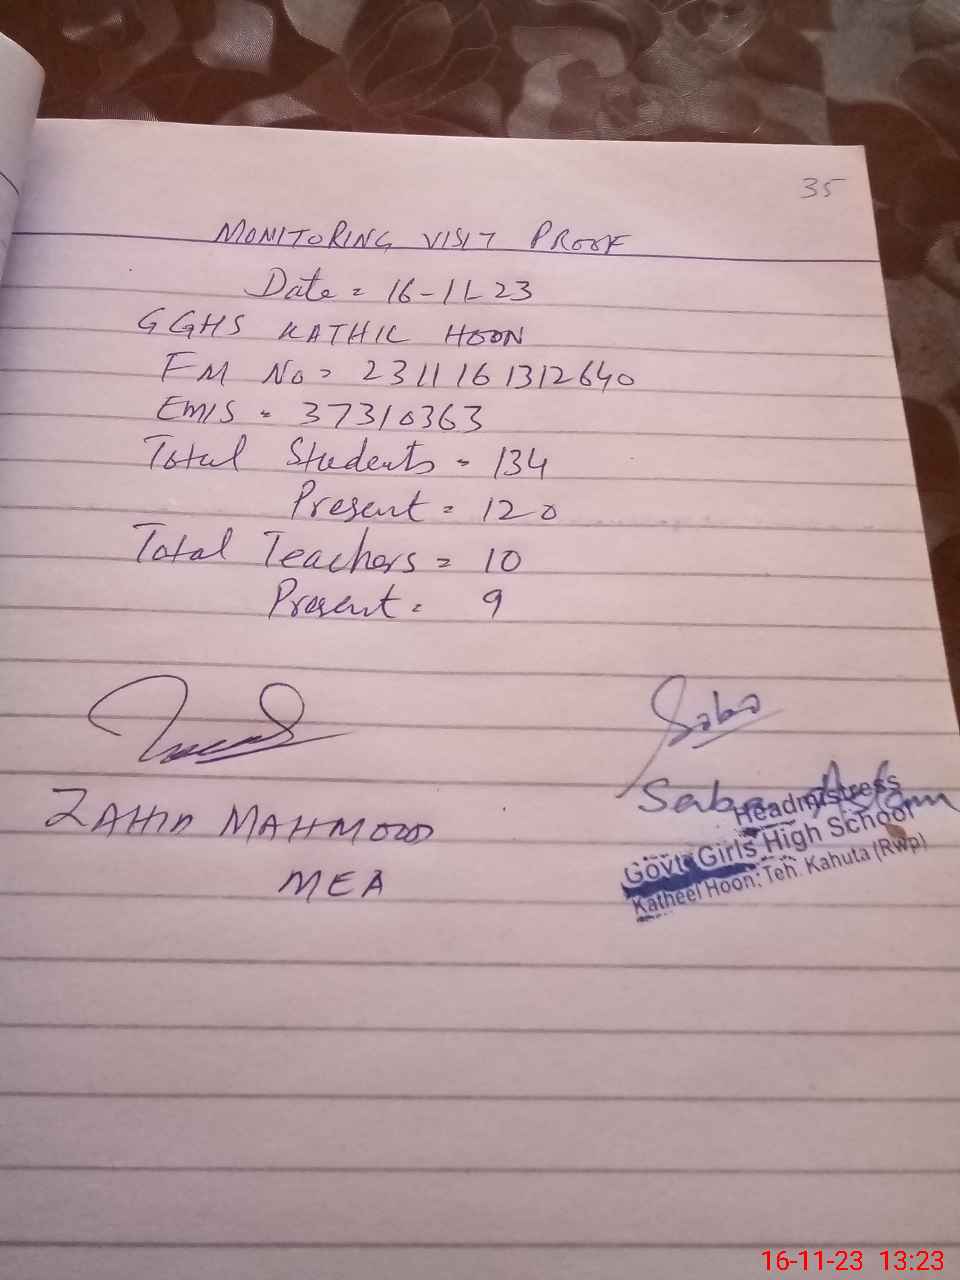 35
MONITORING VISIT PROOF
Date = 16-11-23
GGHS KATHIL HOON
FM No = 2311161312640
EMIS = 37310363
Total Students = 134
Present = 120
Total Teachers = 10
Present = 9
Saba
ZAHID MAHMOOD
MEA
Saba Aslam
Headmistress
Govt. Girls High School
Katheel Hoon: Teh. Kahuta (Rwp)
16-11-23 13:23